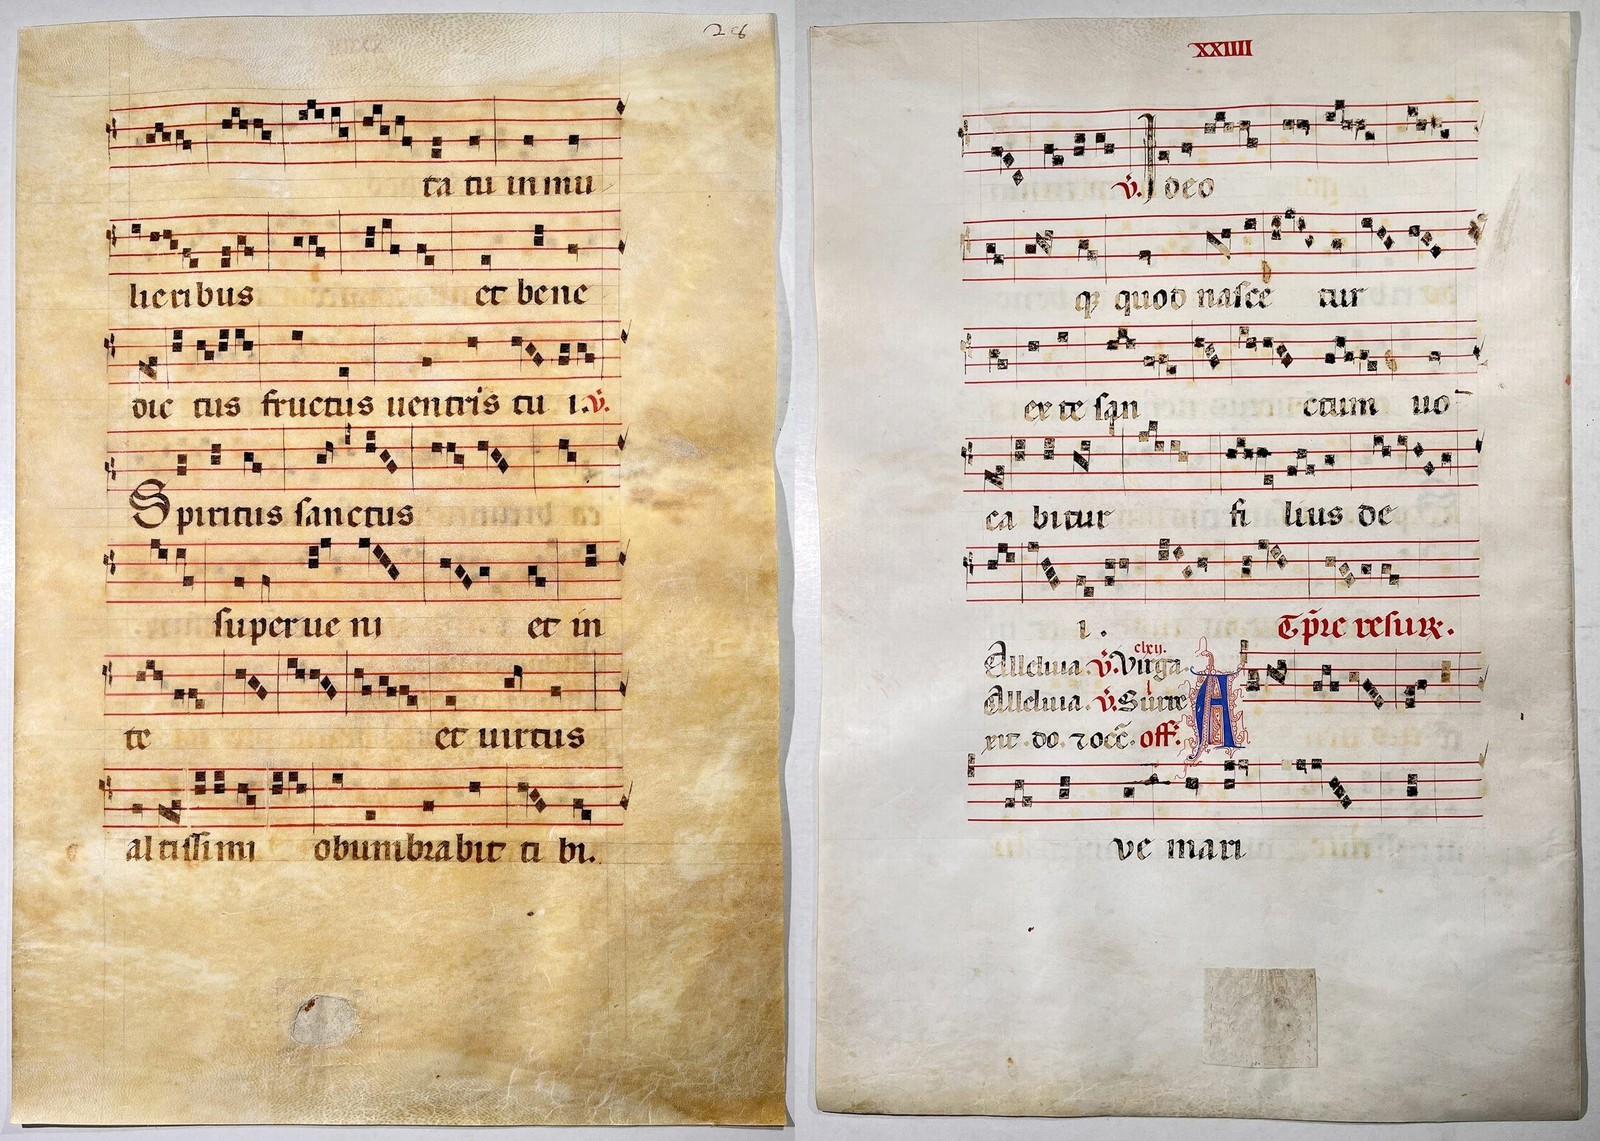 28
ta tu in mu
lieribus et bene
dic tus fructus uentris tu i. v̇.
Spiritus sanctus
superue ni et in
te et uirtus
altissimi obumbrabit ti bi.
XXIIII
v̇. Ideo
qꝫ quod nasce tur
ex te san ctum uo
ca bitur fi lius de
i.
Alleluia. v̇. Virga. clxij.
Alleluia. v̇. Surre
xit. do. ⁊ occ̄. off.
A
ve mari